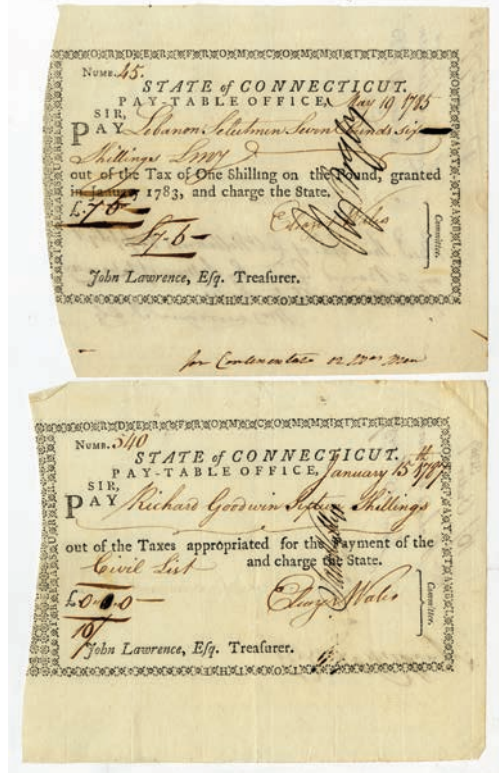 ORDER FROM COMMITTEE OF PAY-TABLE
NUMB. 45.
STATE of CONNECTICUT.
PAY-TABLE OFFICE, May 19 1785
SIR,
PAY Lebanon Selectmen Seven Pounds six
Shillings LMy
out of the Tax of One Shilling on the Pound, granted
in January 1783, and charge the State.
£.7 6
£7-6-
Eleazr Wales
Committee.
John Lawrence, Esq. Treasurer.
TO THE
for Continentals
ORDER FROM COMMITTEE OF PAY-TABLE
NUMB. 340
STATE of CONNECTICUT.
PAY-TABLE OFFICE, January 15th 1787
SIR,
PAY Richard Goodwin Shillings
out of the Taxes appropriated for the Payment of the
Civil List and charge the State.
£.0 0.0
Eleazr Wales
Committee.
John Lawrence, Esq. Treasurer.
TO THE